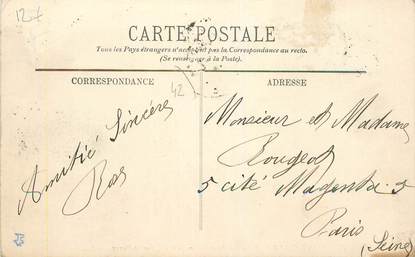 12 f
CARTE POSTALE
Tous les Pays étrangers n'acceptent pas la Correspondance au recto.
(Se renseigner à la Poste).
CORRESPONDANCE
ADRESSE
42
Amitié Sincère
Ros
Monsieur et Madame
Rougeot
5 cité Magenta 5
Paris
(Seine)